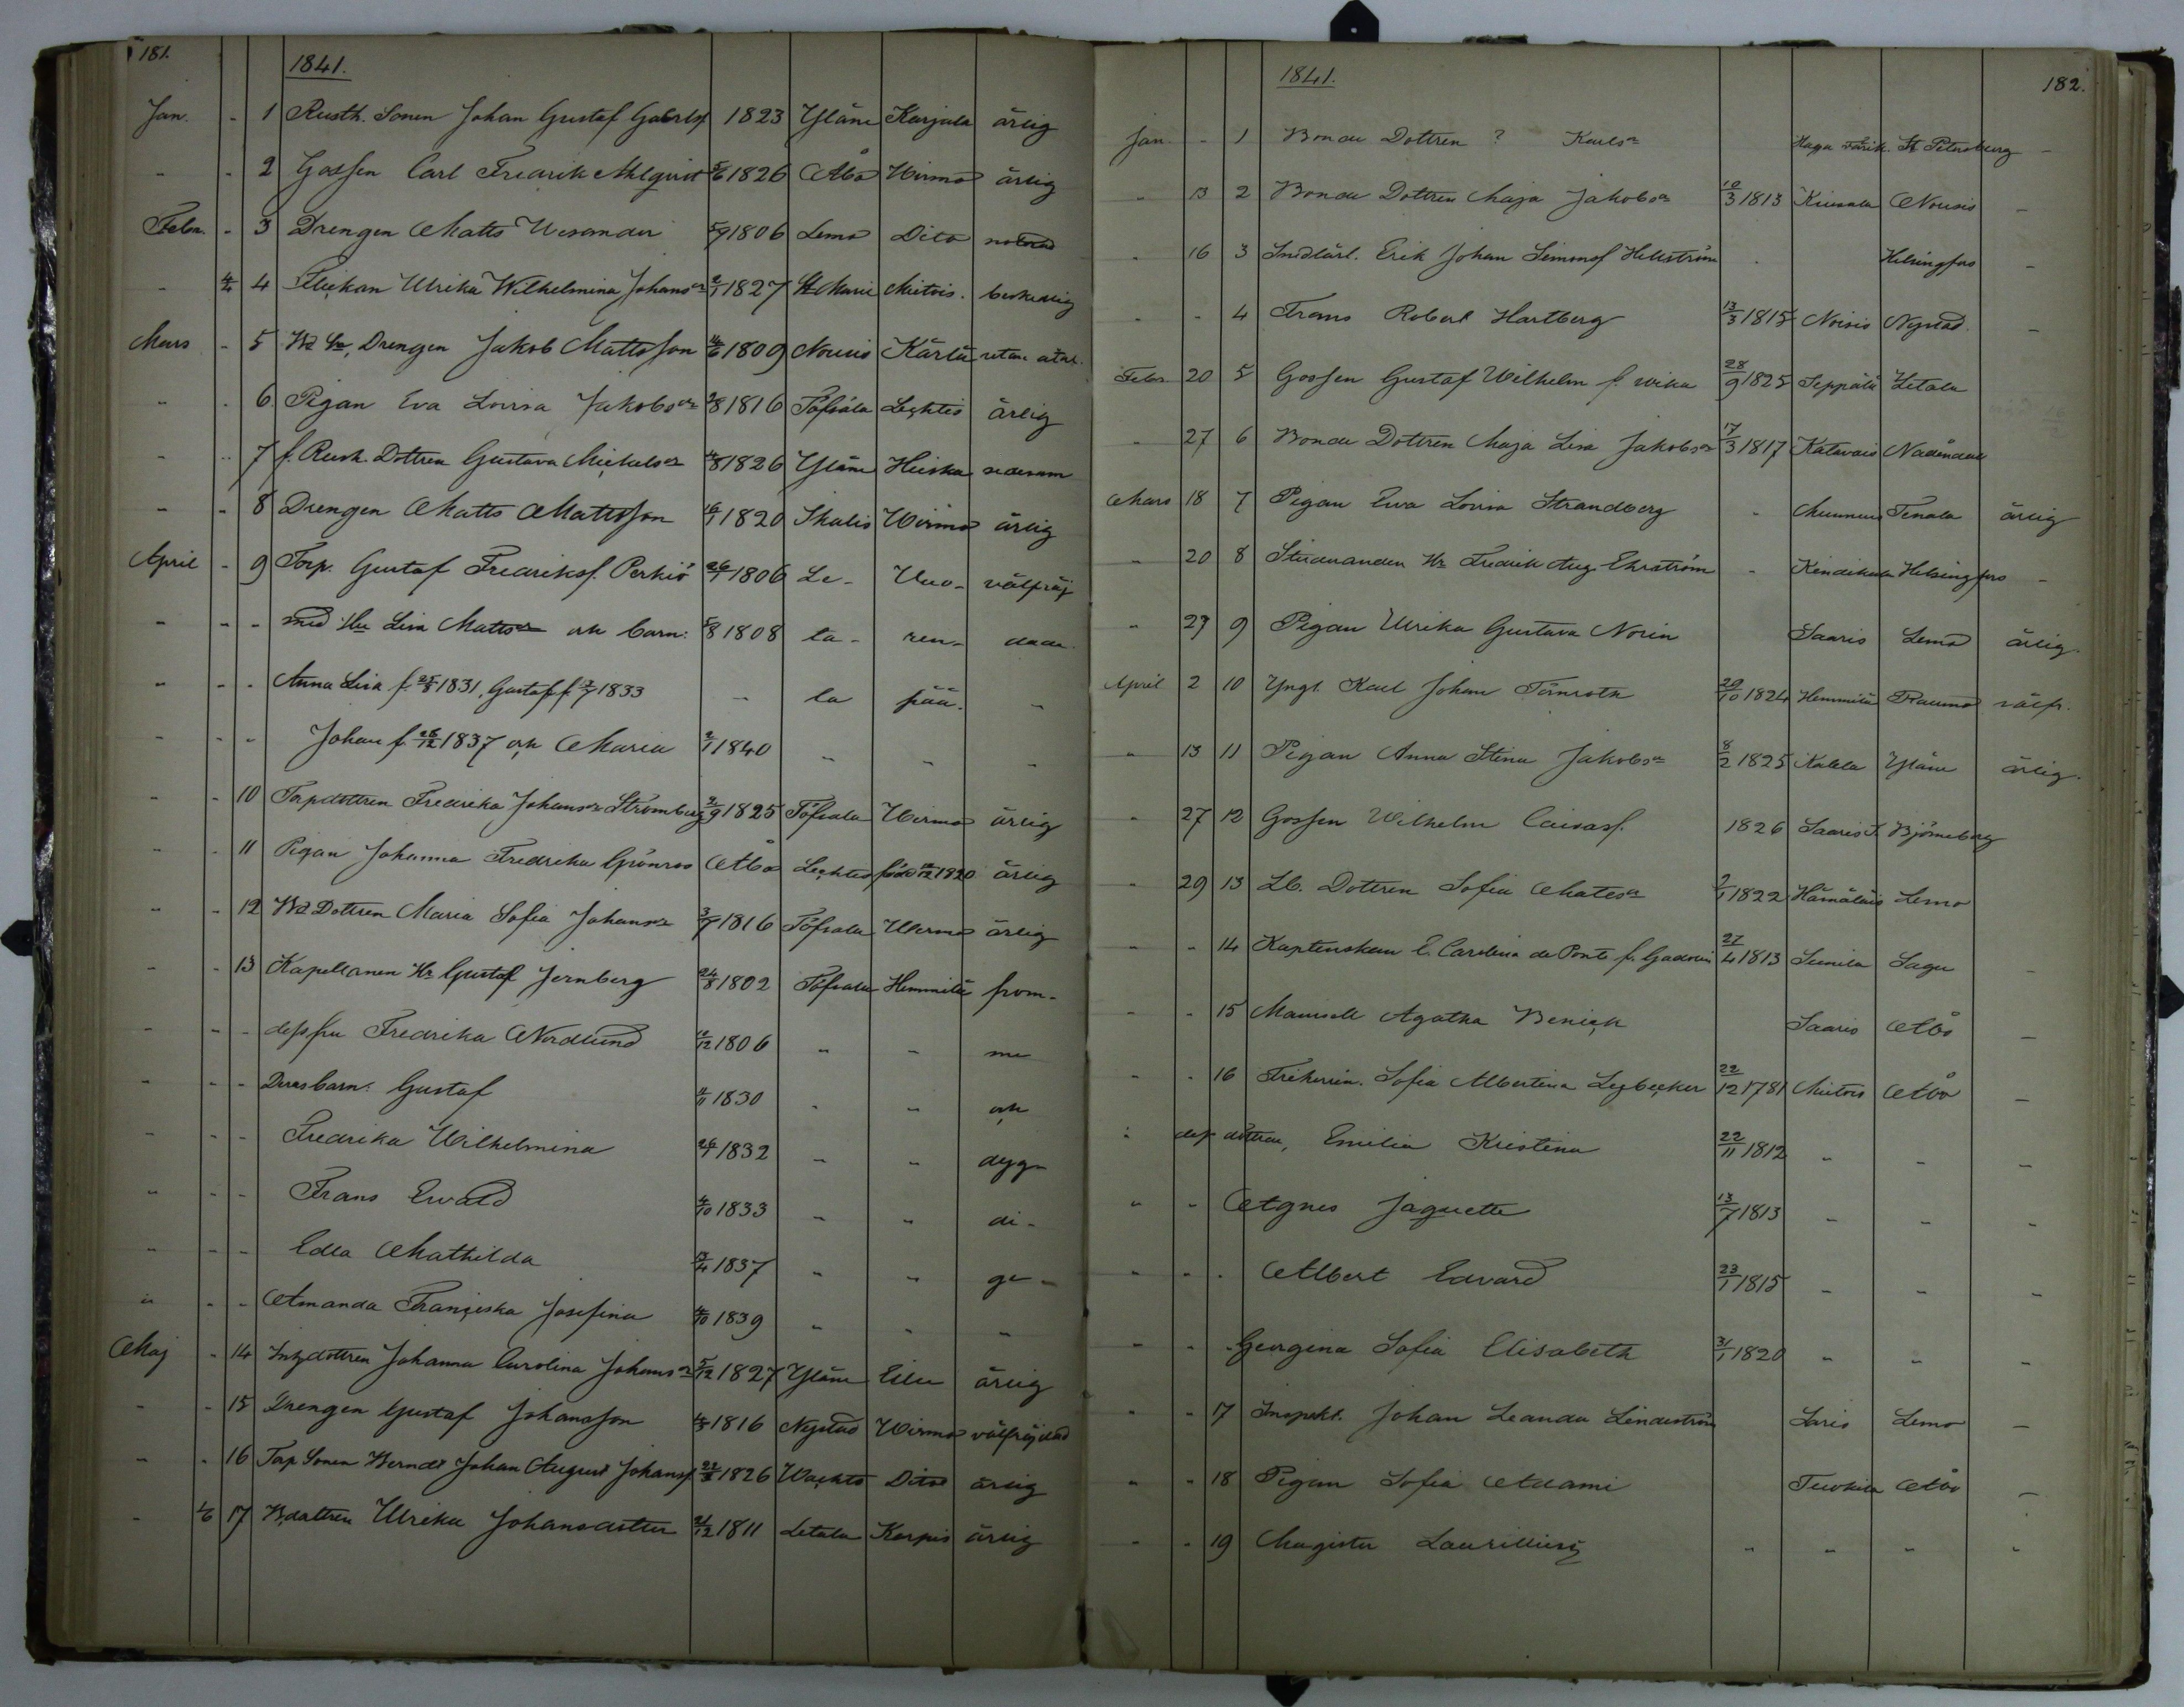 181.
1841.
Jan. - 1 Rusth. Sonen Johan Gustaf Gabrlsf 1823 Yläne Karjala ärlig
- - 2 Gossen Carl Fredrik Ahlqvist 5/6 1826 Åbo Wirmo ärlig
Febr. - 3 Drengen Matts Wesander 5/9 1806 Lemo Dito
- 4/4 4 Flickan Ulrika Wilhelmina Johansdr 2/1 1827 St Marie Mietois. beskedlig
Mars - 5 Drengen Jakob Mattsson 4/6 1809 Nousis Kärlä utan
- - 6 Pigan Eva Lovisa Jakobsdr 2/8 1816 Töfsala Lechtis ärlig
- - 7 f. Rusth. Dottren Gustava Michelsdr 4/8 1826 Yläne Hiiska sedesam
- - 8 Drengen Matts Mattsson 16/1 1820 Ikalis Wirmo ärlig
April - 9 Torp. Gustaf Fredriksf. Perkiö 26/1 1806 Le- Uuo- välfräj
- - - med Hu Lisa Mattsdr och barn: 5/8 1808 ta- ren- dade.
- - - Anna Lisa f. 25/8 1831, Gustaf f. 7/7 1833 - la pää. -
- - - Johan f. 26/12 1837 och Maria 2/1 1840 - - -
- - 10 Torpdottren Fredrika Johansdr Strömberg 2/9 1825 Töfsala Wirmo ärlig
- - 11 Pigan Johanna Fredrika Grönroos Åbo Lechtis född 12/12 1820 ärlig
- - 12 Dottren Maria Sofia Johansdr 3/9 1816 Töfsala Wirmo ärlig
- - 13 Kapellanen Hr Gustaf Jernberg 24/8 1802 Töfsala Hemmilä from-
- - - dess fru Fredrika Nordlund 10/12 1806 - - ma
- - - Deras barn: Gustaf 4/11 1830 - - och
- - - Fredrika Wilhelmina 26/7 1832 - - dyg-
- - - Frans Ewald 4/10 1833 - - di-
- - - Edla Mathilda 13/4 1837 - - ga-
- - - Amanda Franciska Josefina 4/10 1839 - - -
Maj - 14 Inhdottren Johanna Carolina Johansdr 5/12 1827 Yläne ärlig
- - 15 Drengen Gustaf Johansson 4/3 1816 Nystad Wirmo välfräjdad
- - 16 Torp Sonen Berndt Johan August Johansf 22/3 1826 Wachto Dito ärlig
- 1/6 17 B.dottren Ulrika Johansdotter 21/12 1811 Letala Korpis ärlig
182.
1841.
Jan. - 1 Bonde Dottren ? Karlsdr Haga St Petersburg -
- 13 2 Bonde Dottren Maja Jakobsdr 10/3 1813 Kiusala Nousis -
- 16 3 Smedlärl. Erik Johan Simonsf Hellström - Helsingfors -
- - 4 Frans Robert Hartberg 13/3 1815 Noisis Nystad. -
Febr. 20 5 Gossen Gustaf Wilhelm f. Wika 28/9 1825 Seppälä Letala
- 27 6 Bonde Dottren Maja Lisa Jakobsdr 17/3 1817 Katavais Nådendal
Mars 18 7 Pigan Ewa Lovisa Strandberg - Tenala ärlig
- 20 8 Studeranden Hr Fredrik Aug. Ekström - Helsingfors -
- 29 9 Pigan Ulrika Gustava Norin Saaris Lemo ärlig.
April 2 10 Yngl. Karl Johan Törnroth 29/10 1824 Hemmilä Raumo välfr.
- 13 11 Pigan Anna Stina Jakobsdr 8/2 1825 Kalela Yläne ärlig.
- 27 12 Gossen Wilhelm Caisasf. 1826 Saaris Björneborg
- 29 13 Lb. Dottren Sofia Matsdr 2/1 1822 Hämäläis Lemo
- - 14 Kaptenskan E. Carolina de Pont f. Gadolin 27/4 1813 Sunila Sagu -
- - 15 Mamsell Agatha Benick Saaris Åbo -
- - 16 Friherrin. Sofia Albertina Legbecker 22/12 1781 Mietois Åbo -
- dess döttrar, Emilia Kristina 22/11 1812 - - -
- - Agnes Jaquette 13/7 1813 - - -
- - - Albert Edvard 23/1 1815 - - -
- - - Georgina Sofia Elisabeth 31/1 1820 - - -
- - 17 Inspekt. Johan Leander Lindström Saris Lemo -
- - 18 Pigan Sofia Adami Tuokila Åbo -
- - 19 Magister Laurillius - - - -